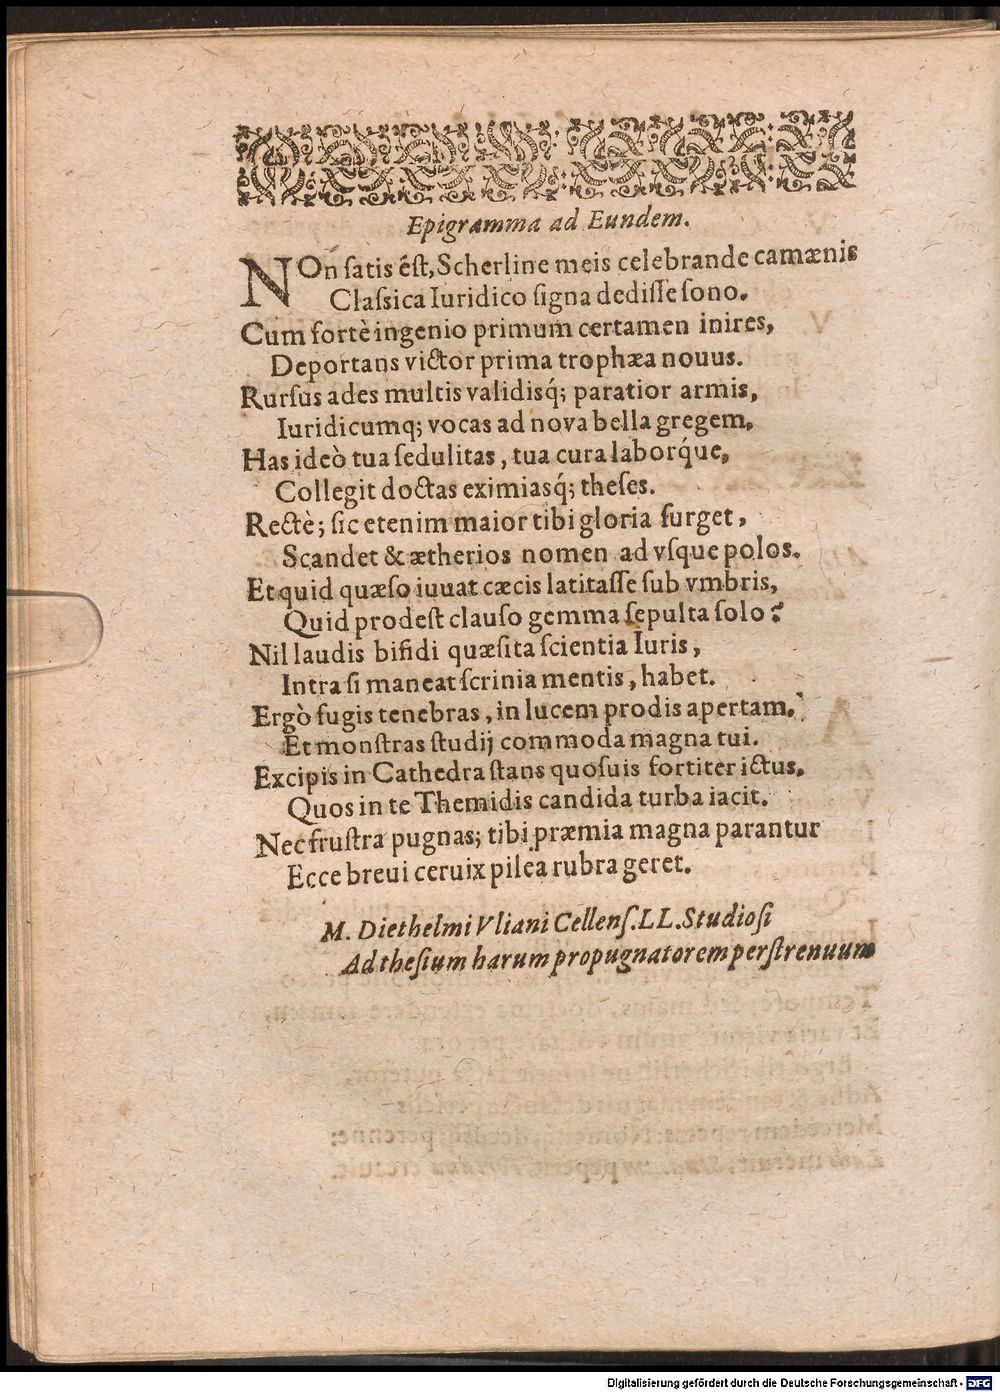 Epigramma ad Eundem.
NOn ſatis éſt, Scherline meis celebrande camænis
Claſsica Iuridico ſigna dediſſe ſono.
Cum fortè ingenio primum certamen inires,
Deportans victor prima trophæa nouus.
Rurſus ades multis validisq́; paratior armis,
Iuridicumq; vocas ad nova bella gregem,
Has ideò tua ſedulitas, tua cura laborq́ue,
Collegit doctas eximiasq́; theſes.
Rectè; ſic etenim maior tibi gloria ſurget,
Scandet & ætherios nomen ad vſque polos.
Et quid quæſo iuuat cæcis latitaſſe ſub vmbris,
Quid prodeſt clauſo gemma ſepulta ſolo?
Nil laudis bifidi quæſita ſcientia Iuris,
Intra ſi maneat ſcrinia mentis, habet.
Ergò fugis tenebras, in lucem prodis apertam,
Et monſtras ſtudij commoda magna tui.
Excipis in Cathedra ſtans quoſuis fortiter ictus,
Quos in te Themidis candida turba iacit.
Nec fruſtra pugnas; tibi præmia magna parantur
Ecce breui ceruix pilea rubra geret.
M. Diethelmi Vliani Cellenſ. LL. Studioſi
Ad theſium harum propugnatorem perſtrenuum
Digitalisierung gefördert durch die Deutsche Forschungsgemeinschaft - DFG